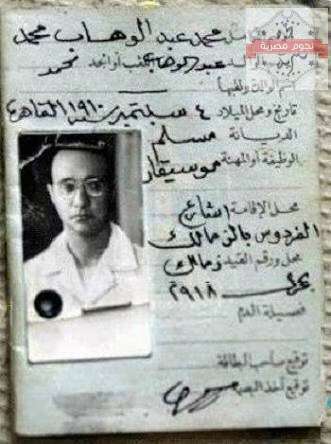 نجوم مصرية
محمد عبد الوهاب محمد
عبد الوهاب
محمد
تاريخ ومحل الميلاد ٤ سبتمبر ١٩١٠ القاهرة
الديانة مسلم
الوظيفة أو المهنة موسيقار
محل الإقامة ١ شارع
الفردوس بالزمالك
محل ورقم القيد زمالك
٢٩١٨
فصيلة الدم
توقيع صاحب البطاقة
توقيع آخذ البصمة